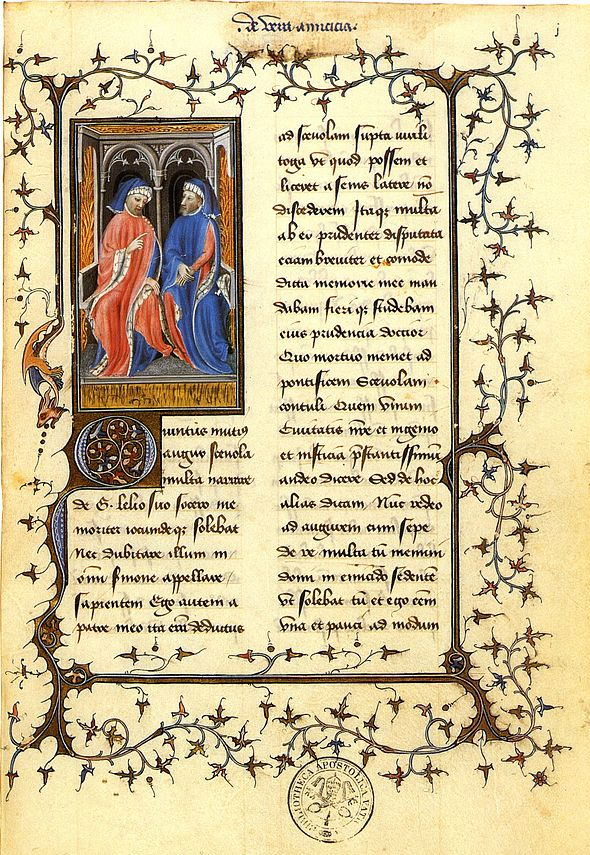 de vera amicicia.
j
Quintus mutius
augur scevola
multa narrare
de G. lelio suo socero me
moriter iocunde qz solebat
Nec dubitare illum in
omni sermone appellare
sapientem Ego autem a
patre meo ita eram deductus
ad scevolam supta virili
toga vt quod possem et
liceret a senis latere no
discederem Itaqz multa
ab eo prudenter disputata
eciam breviter et comode
dicta memorie mee man
dabam fieri qz studebam
eius prudencia doccior
Quo mortuo memet ad
pontificem Scevolam
contuli Quem vnum
Civitatis nre et ingenio
et iusticia prstantissimum
audeo dicere Sed de hoc
alias dicam Nuc redeo
ad augurem cum sepe
de re multa tu memini
domi in emiciclo sedente
vt solebat tu et ego eem
vna et pauci ad modum
BIBLIOTHECA APOSTOLICA VATIC